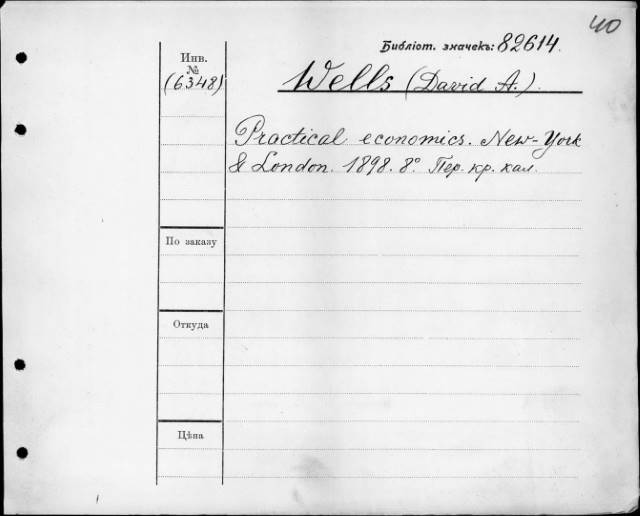 40
Библіот. значекъ: 82614.
Инв.
№
(6348)
Wells (David A.)
Practical economics. New-York
& London. 1898. 8° Пер. кр. кал.
По заказу
Откуда
Цѣна